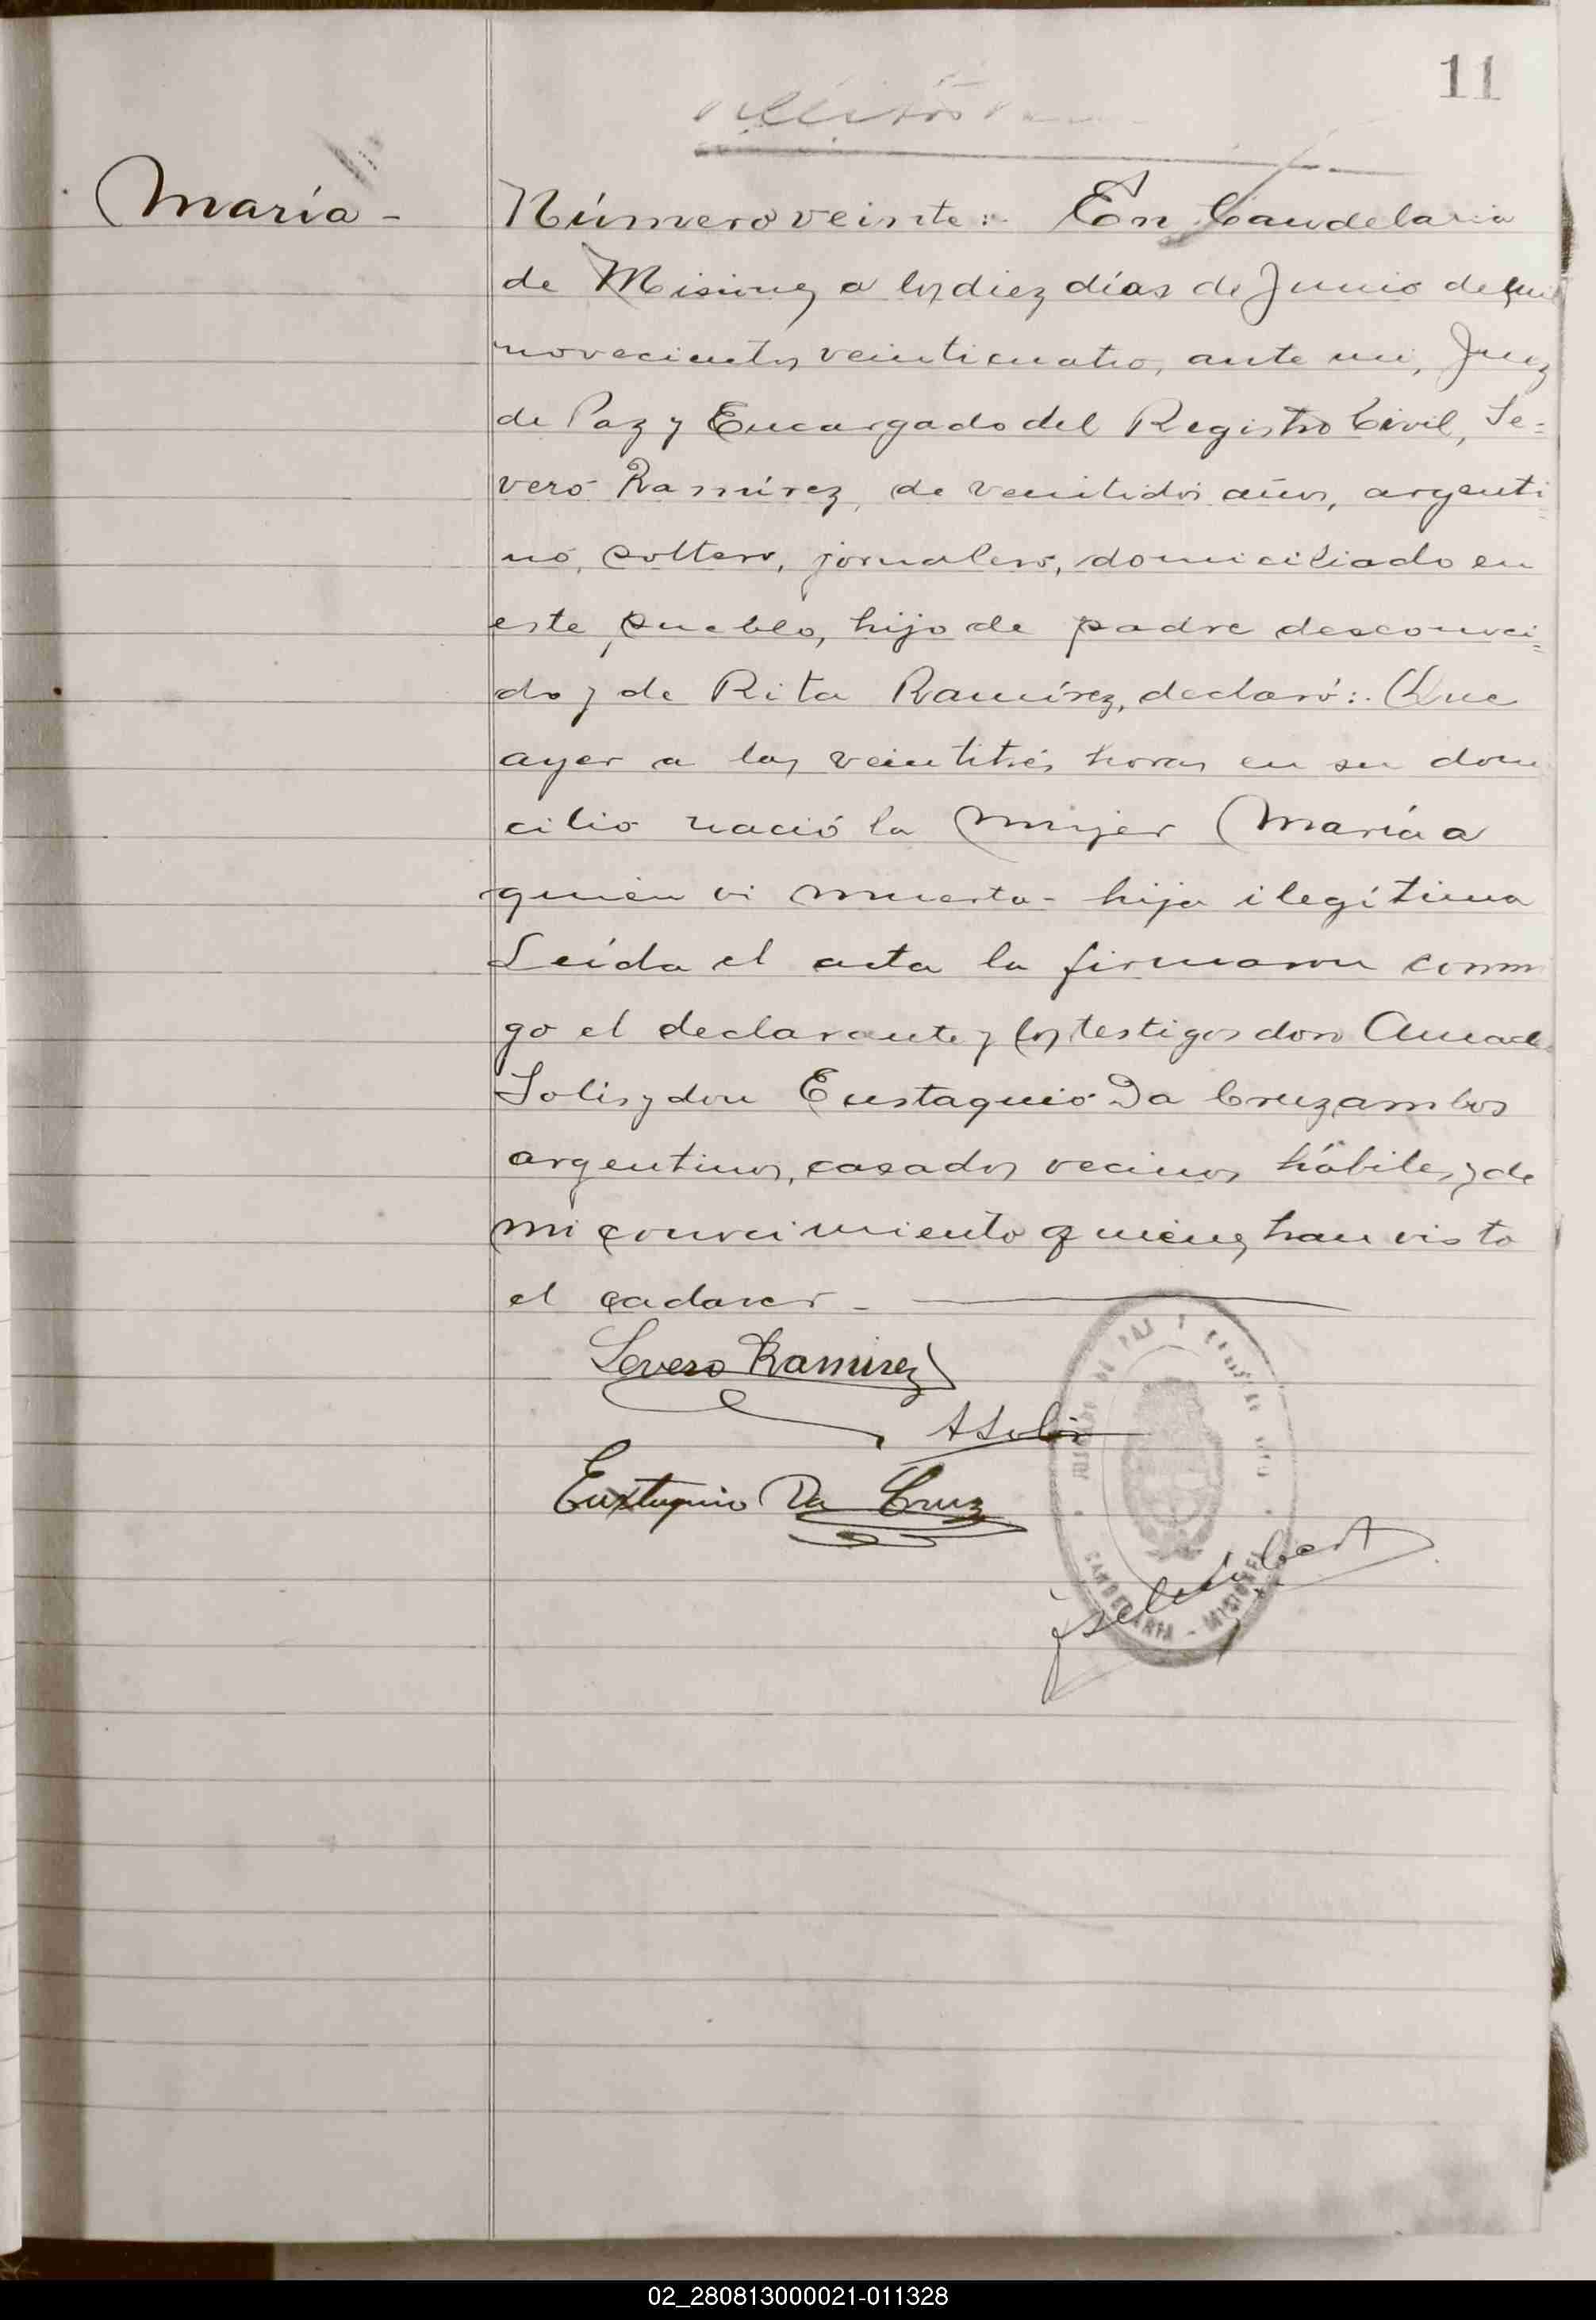 11
María -
Número veinte: En Candelaria
de Misiones a los diez días de Junio de mil
novecientos veinticuatro, ante mi, Juez
de Paz y Encargado del Registro Civil, Se=
vero Ramírez, de veintidos años, argenti=
no, soltero, jornalero, domiciliado en
este pueblo, hijo de padre desconoci=
do y de Rita Ramírez, declaró: Que
ayer a las veintitrés horas en su domi
cilio nació la mujer María a
quien vi muerta - hija ilegítima
Leída el acta la firmaron conmi
go el declarante y los testigos don Amado
Solis y don Eustaquio Da Cruz ambos
argentinos, casados vecinos hábiles y de
mi conocimiento quienes han visto
el cadaver -
Severo Ramirez
A Solis
Eustaquio Da Cruz
JUZGADO DE PAZ Y
CANDELARIA - MISIONES
02_280813000021-011328